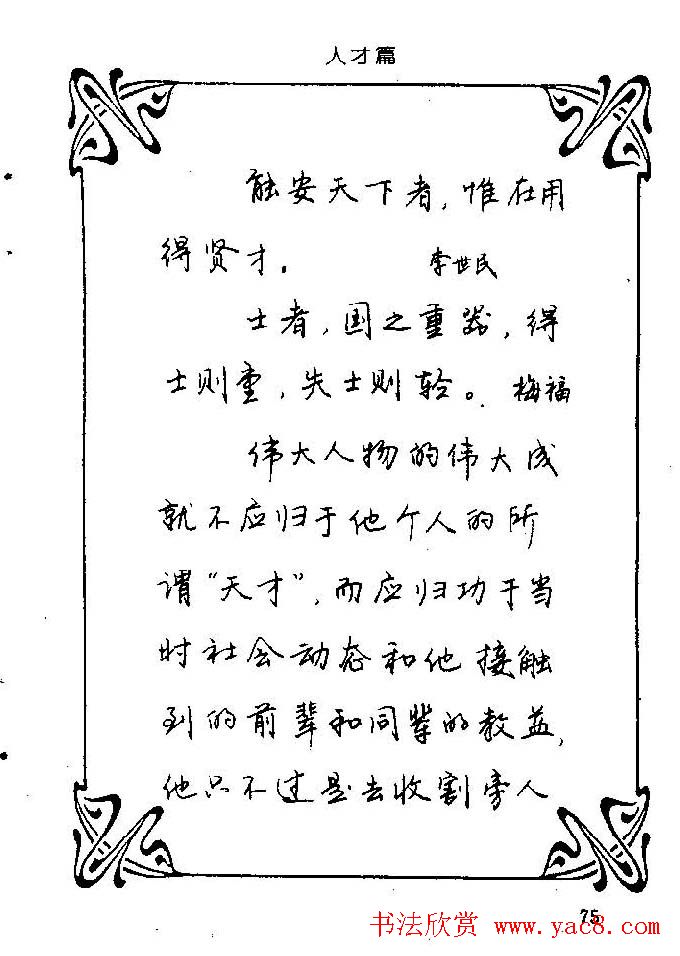 人才篇
能安天下者，惟在用
得贤才。 李世民
士者，国之重器，得
士则重，失士则轻。 梅福
伟大人物的伟大成
就不应归于他个人的所
谓“天才”，而应归功于当
时社会动态和他接触
到的前辈和同辈的教益，
他只不过是去收割旁人
75
书法欣赏 www.yac8.com